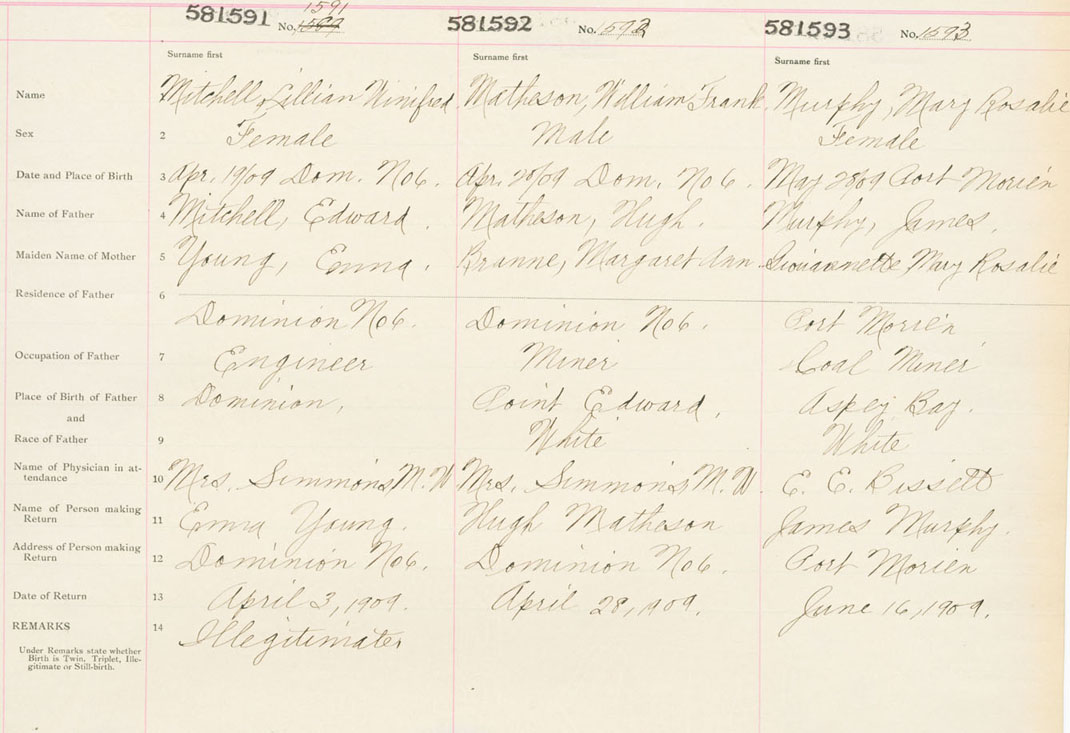 581591 No. 1591 1589 581592 No. 1592 581593 No. 1593
Surname first Surname first Surname first
Name Mitchell, Lillian Winifred Matheson, William Frank Murphy, Mary Rosalie
Sex 2 Female Male Female
Date and Place of Birth 3 Apr. 19/09 Dom. No 6. Apr. 28/09 Dom. No 6. May 28/09 Port Morien
Name of Father 4 Mitchell, Edward. Matheson, Hugh. Murphy, James.
Maiden Name of Mother 5 Young, Emma. Margaret Ann Mary Rosalie
Residence of Father 6
Dominion No 6. Dominion No 6. Port Morien
Occupation of Father 7 Engineer Miner Coal Miner
Place of Birth of Father 8 Dominion, Point Edward, Aspey Bay.
and
Race of Father 9 White White
Name of Physician in at-
tendance 10 Mrs. Simmons, M. W Mrs. Simmons, M. W. E. E. Bissett
Name of Person making
Return 11 Emma Young. Hugh Matheson James Murphy.
Address of Person making
Return 12 Dominion No 6. Dominion No 6. Port Morien
Date of Return 13 April 3, 1909. April 28, 1909. June 16, 1909.
REMARKS 14 Illegitimate
Under Remarks state whether
Birth is Twin, Triplet, Ille-
gitimate or Still-birth.